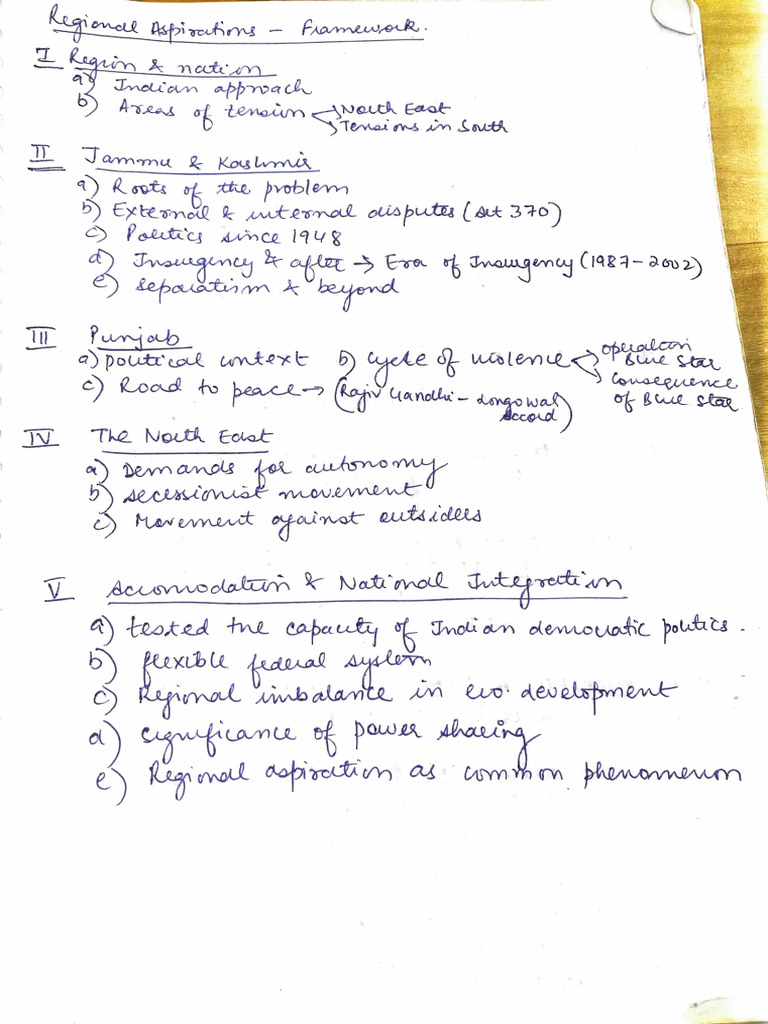 Regional Aspirations - Framework.
I Region & nation
a) Indian approach
b) Areas of tension → North East
→ Tensions in South
II Jammu & Kashmir
a) Roots of the problem
b) External & internal disputes (Art 370)
c) Politics since 1948
d) Insurgency & after → Era of Insurgency (1987-2002)
e) separatism & beyond
III Punjab
a) political context b) cycle of violence → operation Blue Star
→ Consequence of Blue Star
c) Road to peace → (Rajiv Gandhi - Longowal Accord)
IV The North East
a) Demands for autonomy
b) secessionist movement
c) Movement against outsiders
V Accomodation & National Integration
a) tested the capacity of Indian democratic politics.
b) flexible federal system
c) Regional imbalance in eco. development
d) significance of power sharing
e) Regional aspiration as common phenomenon